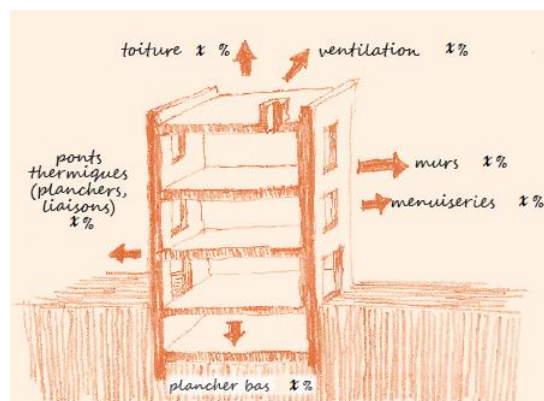 toiture x %
ventilation x %
ponts
thermiques
(planchers,
liaisons)
x %
murs x %
menuiseries x %
plancher bas x %